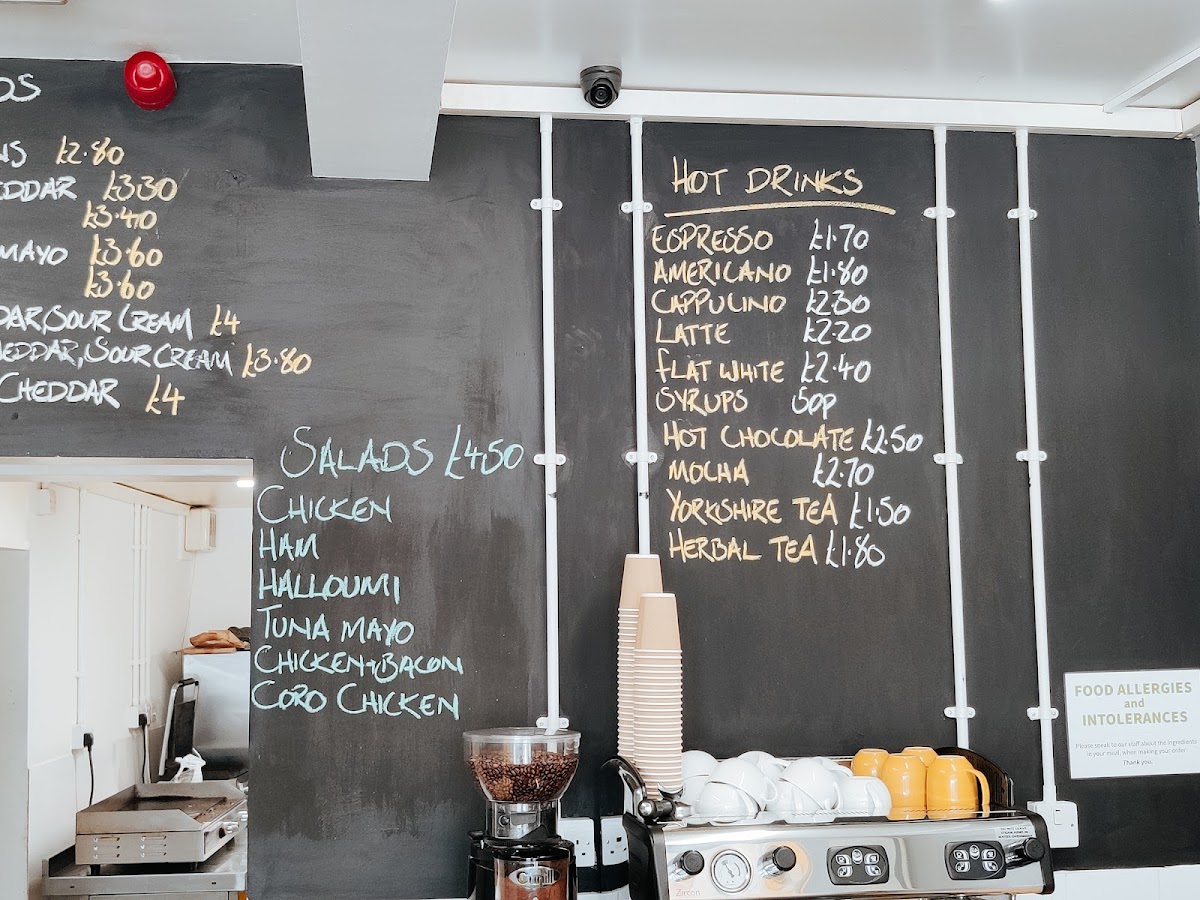 £2.80
£3.30
£3.40
MAYO £3.60
£3.60
SOUR CREAM £4
SOUR CREAM £3.80
CHEDDAR £4
SALADS £4.50
CHICKEN
HAM
HALLOUMI
TUNA MAYO
CHICKEN+BACON
CORO CHICKEN
HOT DRINKS
ESPRESSO £1.70
AMERICANO £1.80
CAPPUCINO £2.30
LATTE £2.20
FLAT WHITE £2.40
SYRUPS 50p
HOT CHOCOLATE £2.50
MOCHA £2.70
YORKSHIRE TEA £1.50
HERBAL TEA £1.80
FOOD ALLERGIES
and
INTOLERANCES
Please speak to our staff about the ingredients
in your meal, when making your order.
Thank you.
Cunill
Zircon